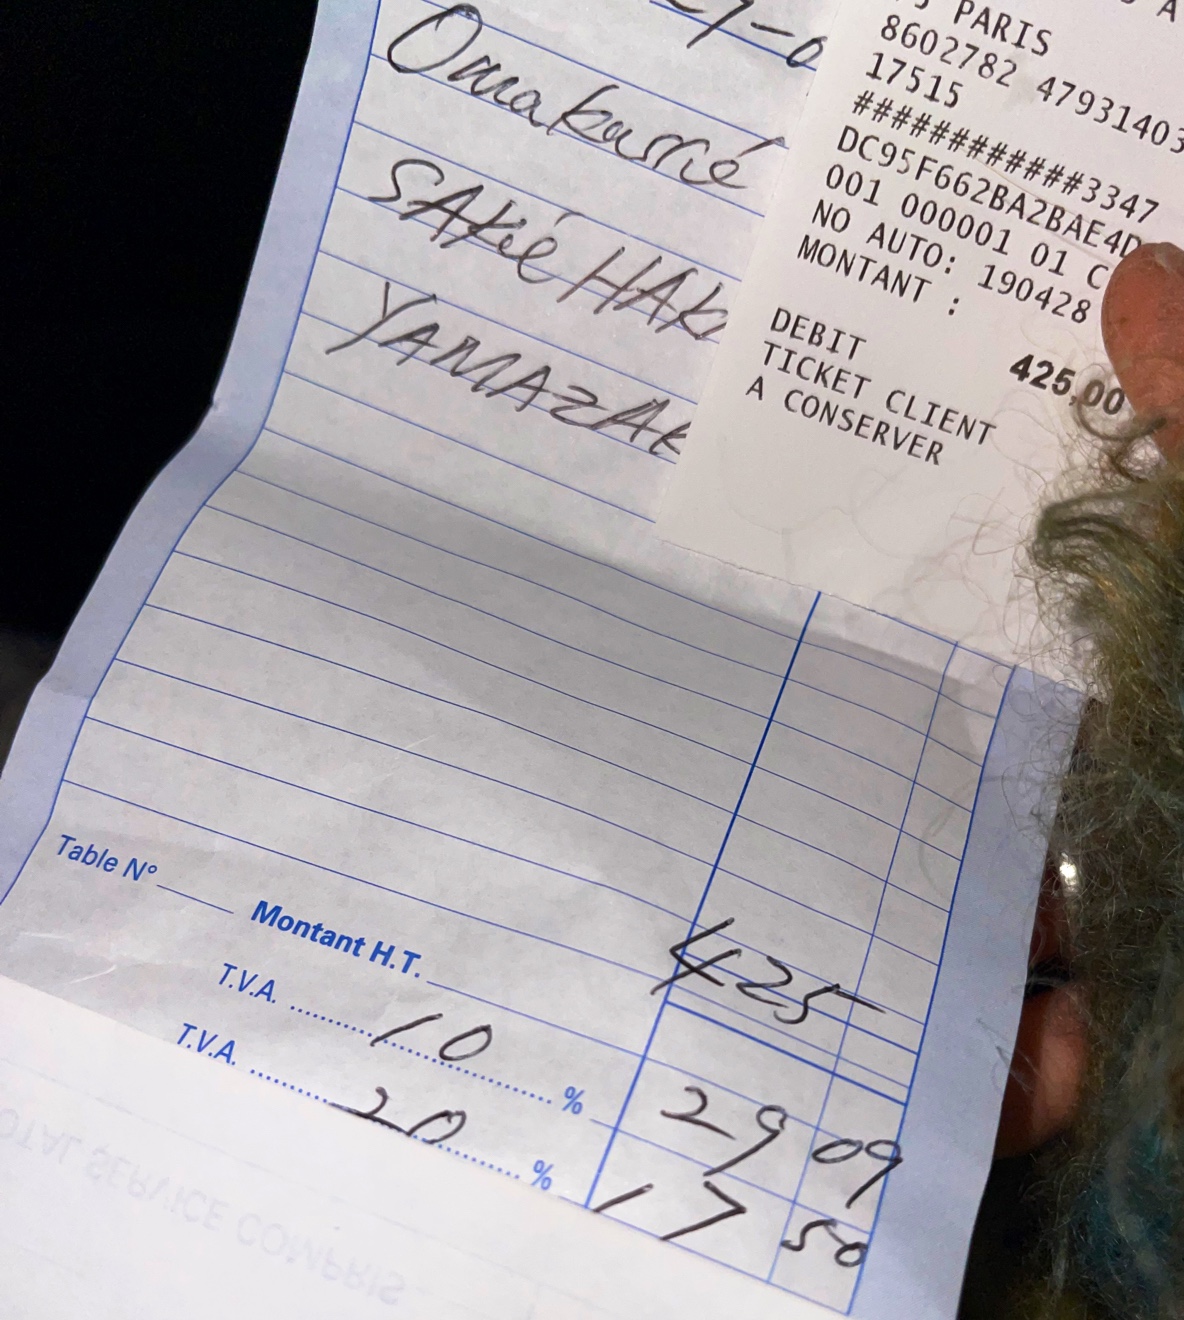 Omakassé
SAKé HAK
YAMAZAK
PARIS
8602782 47931403
17515
############3347
DC95F662BA2BAE4D
001 000001 01 C
NO AUTO: 190428
MONTANT :
425,00
DEBIT
TICKET CLIENT
A CONSERVER
425-
Table N°
Montant H.T.
T.V.A. 10 % 29 09
T.V.A. 20 % 17 50
TOTAL SERVICE COMPRIS